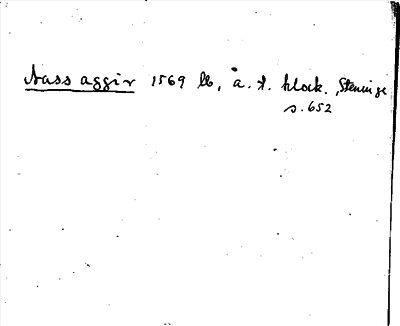 Aass aggir 1569 lb, å. t. klock. Steninge
s. 652